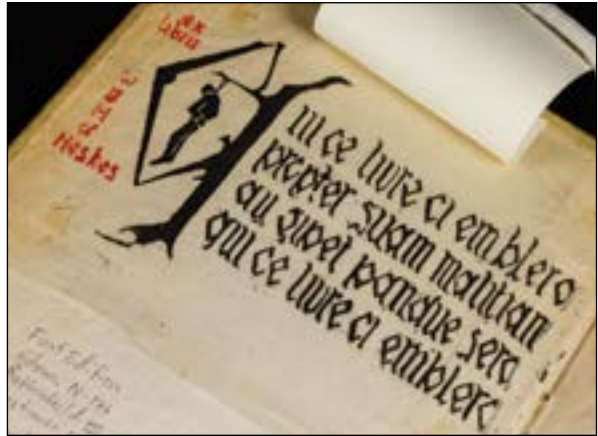 ex
libris
Heskes
Qui ce livre ci emblera
propter suam malitiam
au gibet pandue sera
qui ce livre ci emblera
First Edition